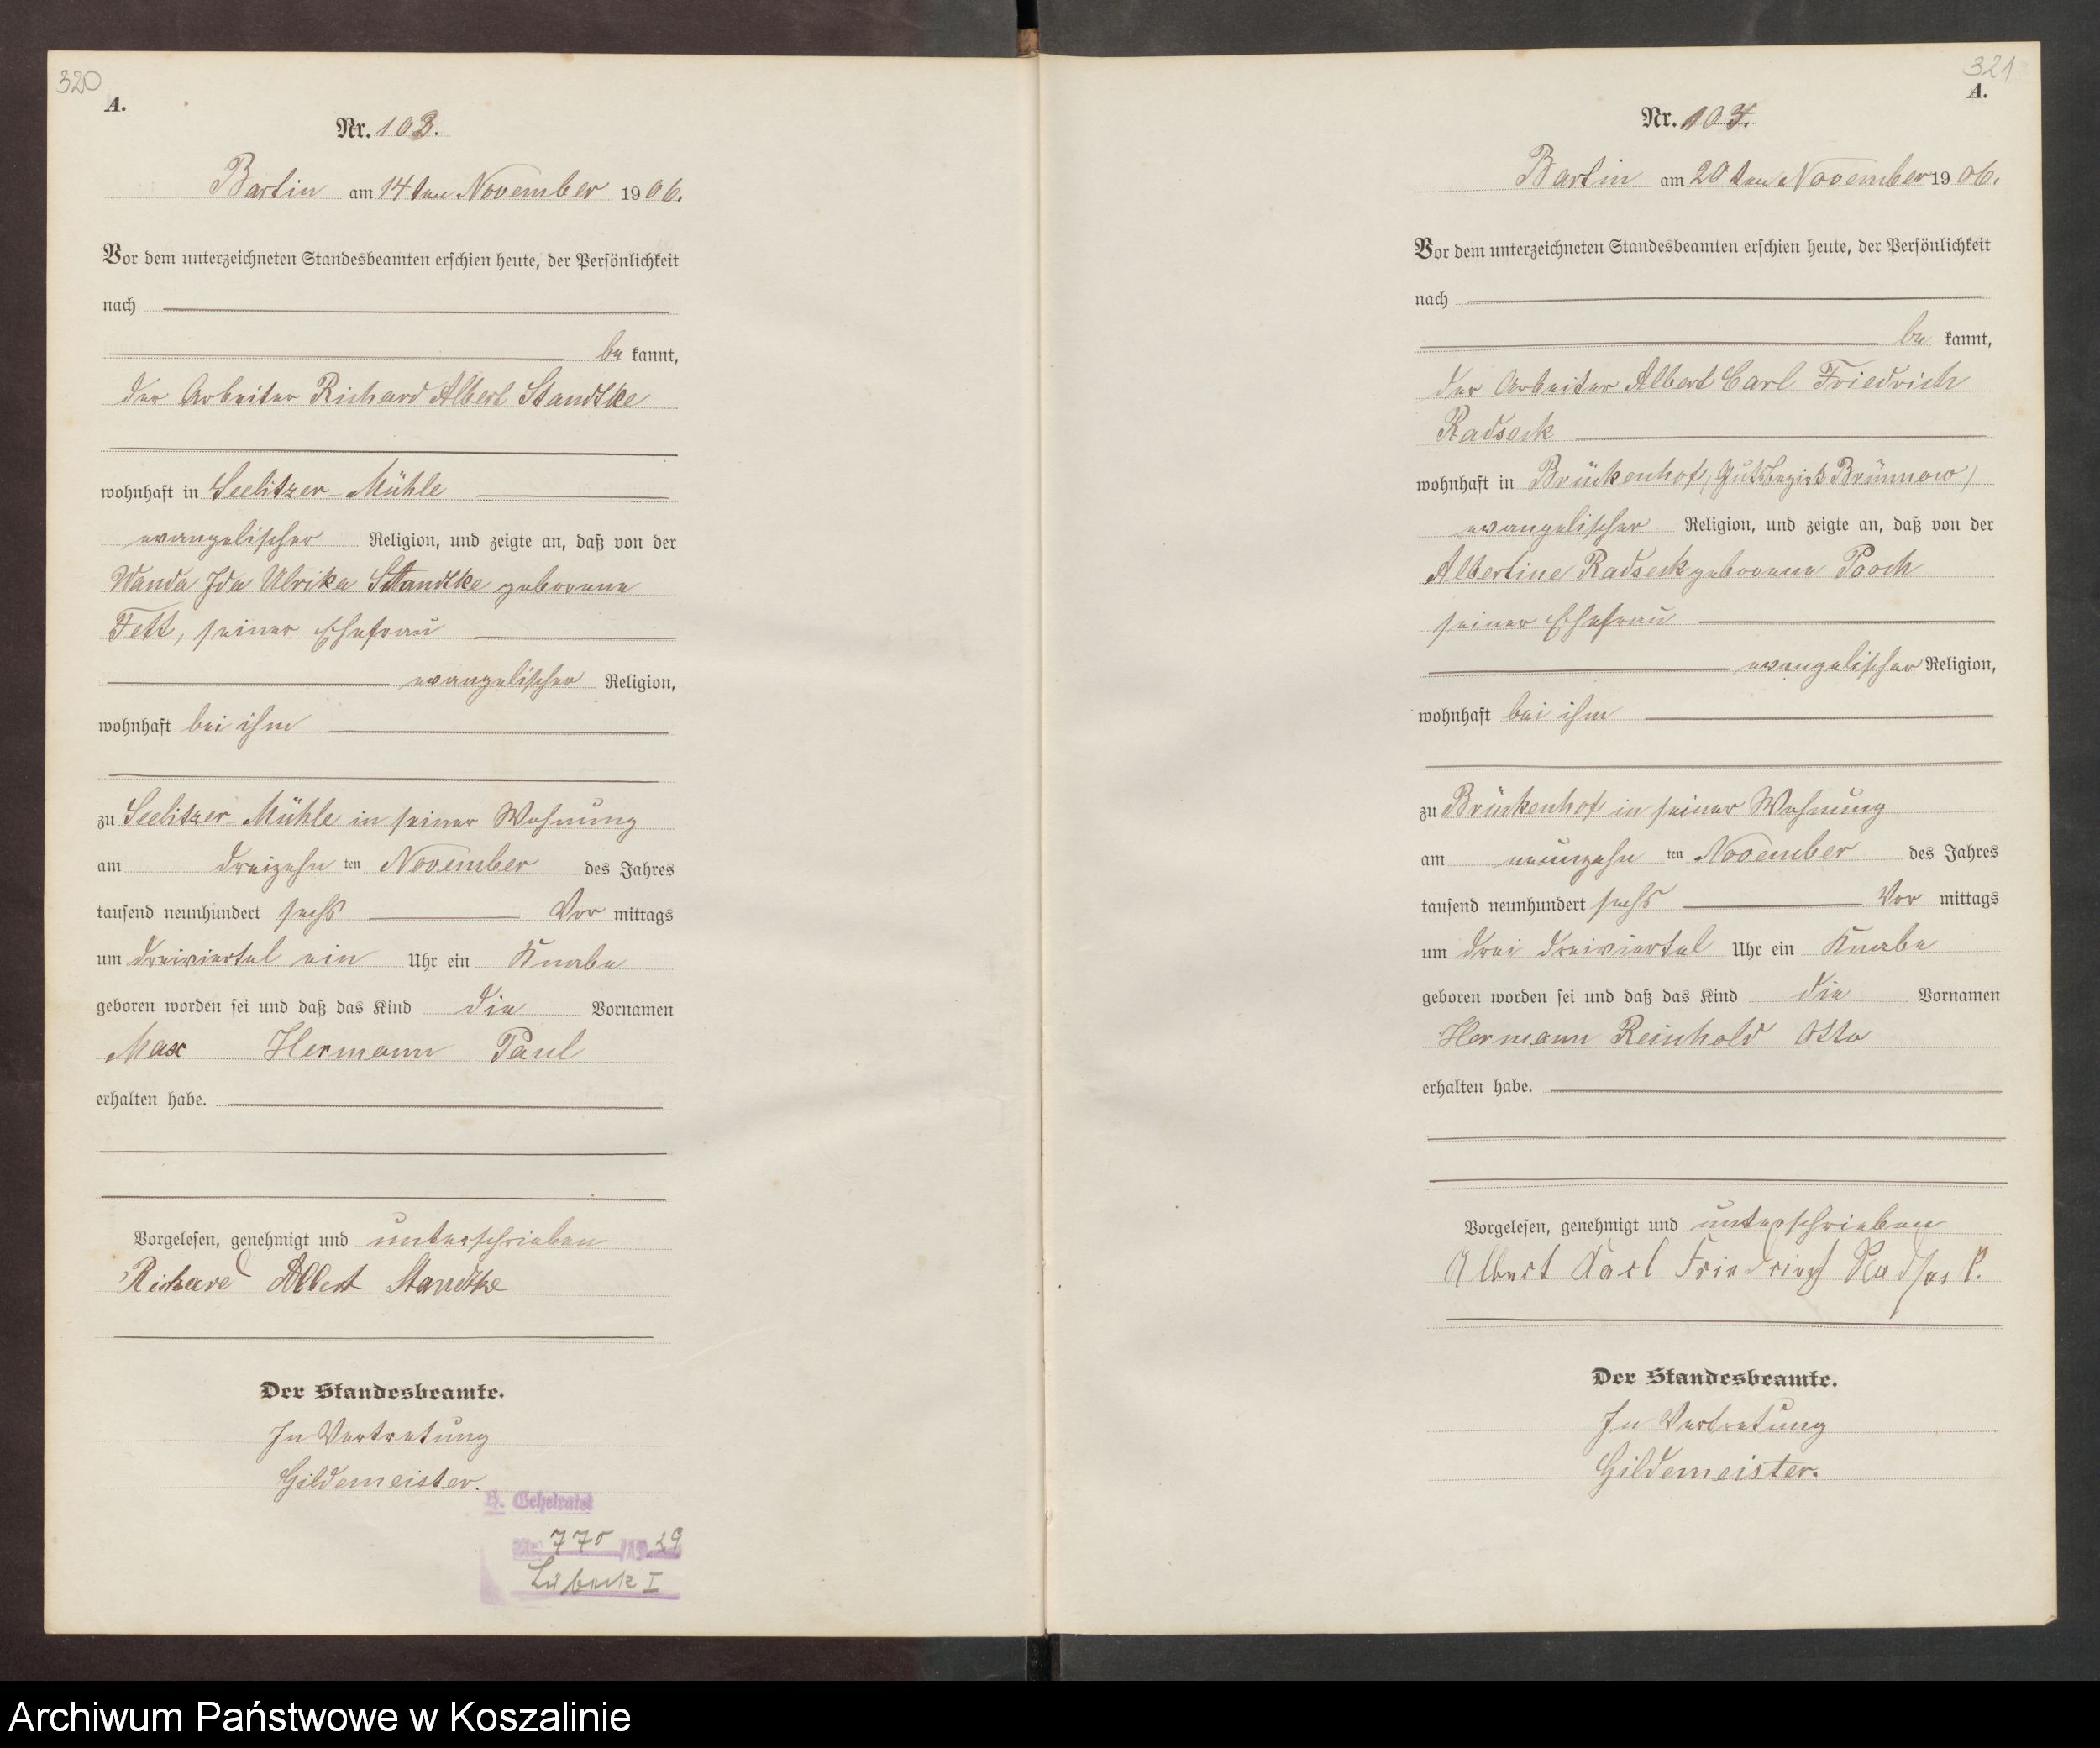 320
A.
Nr. 103.
Bartin am 14ten November 1906.
Vor dem unterzeichneten Standesbeamten erschien heute, der Persönlichkeit
nach
be kannt,
der Arbeiter Richard Albert Standtke
wohnhaft in Seelitzer-Mühle
evangelischer Religion, und zeigte an, daß von der
Wanda Ida Ulrike Standtke geborene
Fett, seiner Ehefrau
evangelischer Religion,
wohnhaft bei ihm
zu Seelitzer-Mühle in seiner Wohnung
am dreizehn ten November des Jahres
tausend neunhundert sechs Vor mittags
um dreiviertel ein Uhr ein Knabe
geboren worden sei und daß das Kind die Vornamen
Max Hermann Paul
erhalten habe.
Vorgelesen, genehmigt und unterschrieben
Richard Albert Standtke
Der Standesbeamte.
In Vertretung
Gildemeister.
H. Geheiratet
Nr. 770 /19 29
Lübeck I
321
A.
Nr. 104.
Bartin am 20ten November 1906.
Vor dem unterzeichneten Standesbeamten erschien heute, der Persönlichkeit
nach
be kannt,
der Arbeiter Albert Carl Friedrich
Radseck
wohnhaft in Brückenhof, (Gutsbezirk Brünnow)
evangelischer Religion, und zeigte an, daß von der
Albertine Radseck geborene Pooch
seiner Ehefrau
evangelischer Religion,
wohnhaft bei ihm
zu Brückenhof in seiner Wohnung
am neunzehn ten November des Jahres
tausend neunhundert sechs Vor mittags
um drei dreiviertel Uhr ein Knabe
geboren worden sei und daß das Kind die Vornamen
Hermann Reinhold Otto
erhalten habe.
Vorgelesen, genehmigt und unterschrieben
Albert Karl Friedrich
Der Standesbeamte.
In Vertretung
Gildemeister.
Archiwum Państwowe w Koszalinie